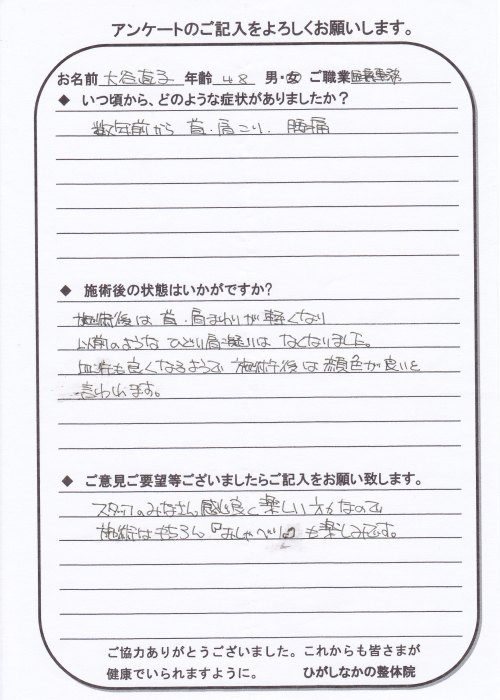 アンケートのご記入をよろしくお願いします。
お名前 大谷直子 年齢 48 男・女 ご職業 医療事務
◆ いつ頃から、どのような症状がありましたか？
数年前から 首・肩こり、腰痛
◆ 施術後の状態はいかがですか?
施術後は 首・肩まわりが軽くなり
以前のような ひどい肩凝りは なくなりました。
血流も良くなるようで 施術後は 顔色が良いと
言われます。
◆ ご意見ご要望等ございましたらご記入をお願い致します。
スタッフのみなさん感じ良く楽しい方なので
施術はもちろん『おしゃべり』も楽しみです。
ご協力ありがとうございました。これからも皆さまが
健康でいられますように。 ひがしなかの整体院